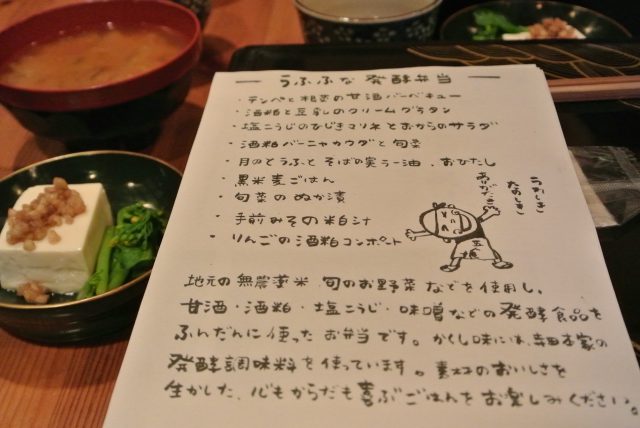 うふふな 発酵弁当
・テンペと根菜の甘酒バーベキュー
・酒粕と豆乳のクリームグラタン
・塩こうじのひじきマリネとおからのサラダ
・酒粕バーニャカウダと旬菜
・月のとうふと そばの実ラー油 . おひたし
・黒米麦ごはん
・旬菜のぬか漬
・手前みその粕汁
・りんごの酒粕コンポート
うれしき
たのしき
ありがたき
地元の無農薬米 旬のお野菜などを使用し、
甘酒・酒粕・塩こうじ・味噌などの発酵食品を
ふんだんに使ったお弁当です。かくし味には、寺田本家の
発酵調味料を使っています。素材のおいしさを
生かした、心もからだも喜ぶごはんをお楽しみください。